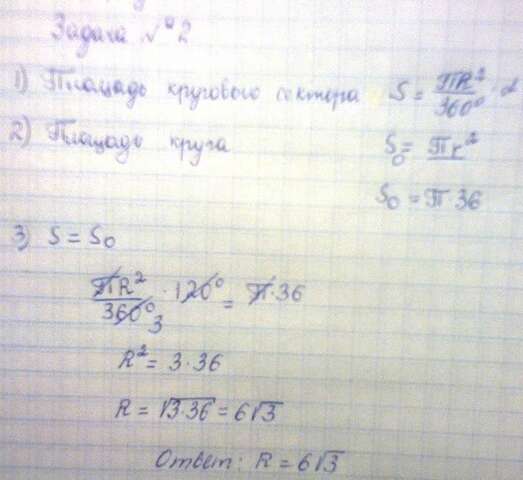 Задача №2
1) Площадь кругового сектора S = ПR²/360° · α
2) Площадь круга S₀ = Пr²
S₀ = П·36
3) S = S₀
ПR²/360° · 120° = П·36
3
R² = 3·36
R = √3·36 = 6√3
Ответ: R = 6√3